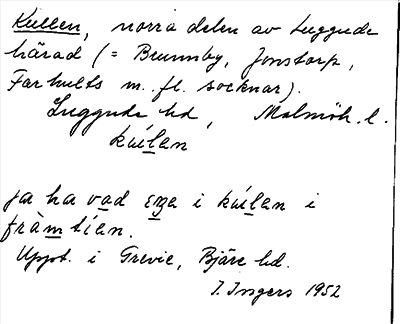 Kullen, norra delen av Luggude
härad (= Brunnby, Jonstorp,
Farhults m. fl. socknar).
Luggude hd, Malmöh. l.
kúlan
ja ha vad i kúlan i
fràmtían.
Uppt. i Grevie, Bjäre hd.
I. Ingers 1952